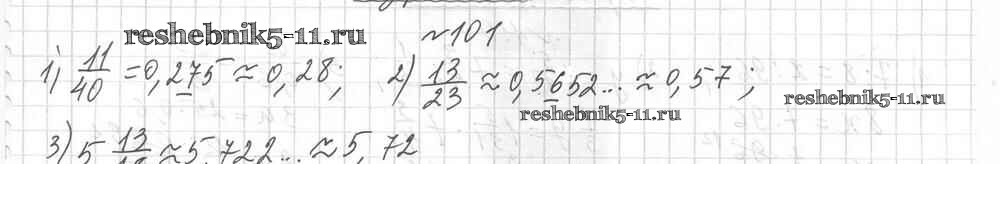 reshebnik5-11.ru №101
1) 11/40 = 0,275 ≈ 0,28; 2) 13/23 ≈ 0,5652... ≈ 0,57;
reshebnik5-11.ru reshebnik5-11.ru
3) 5 13/ ≈ 5,722... ≈ 5,72